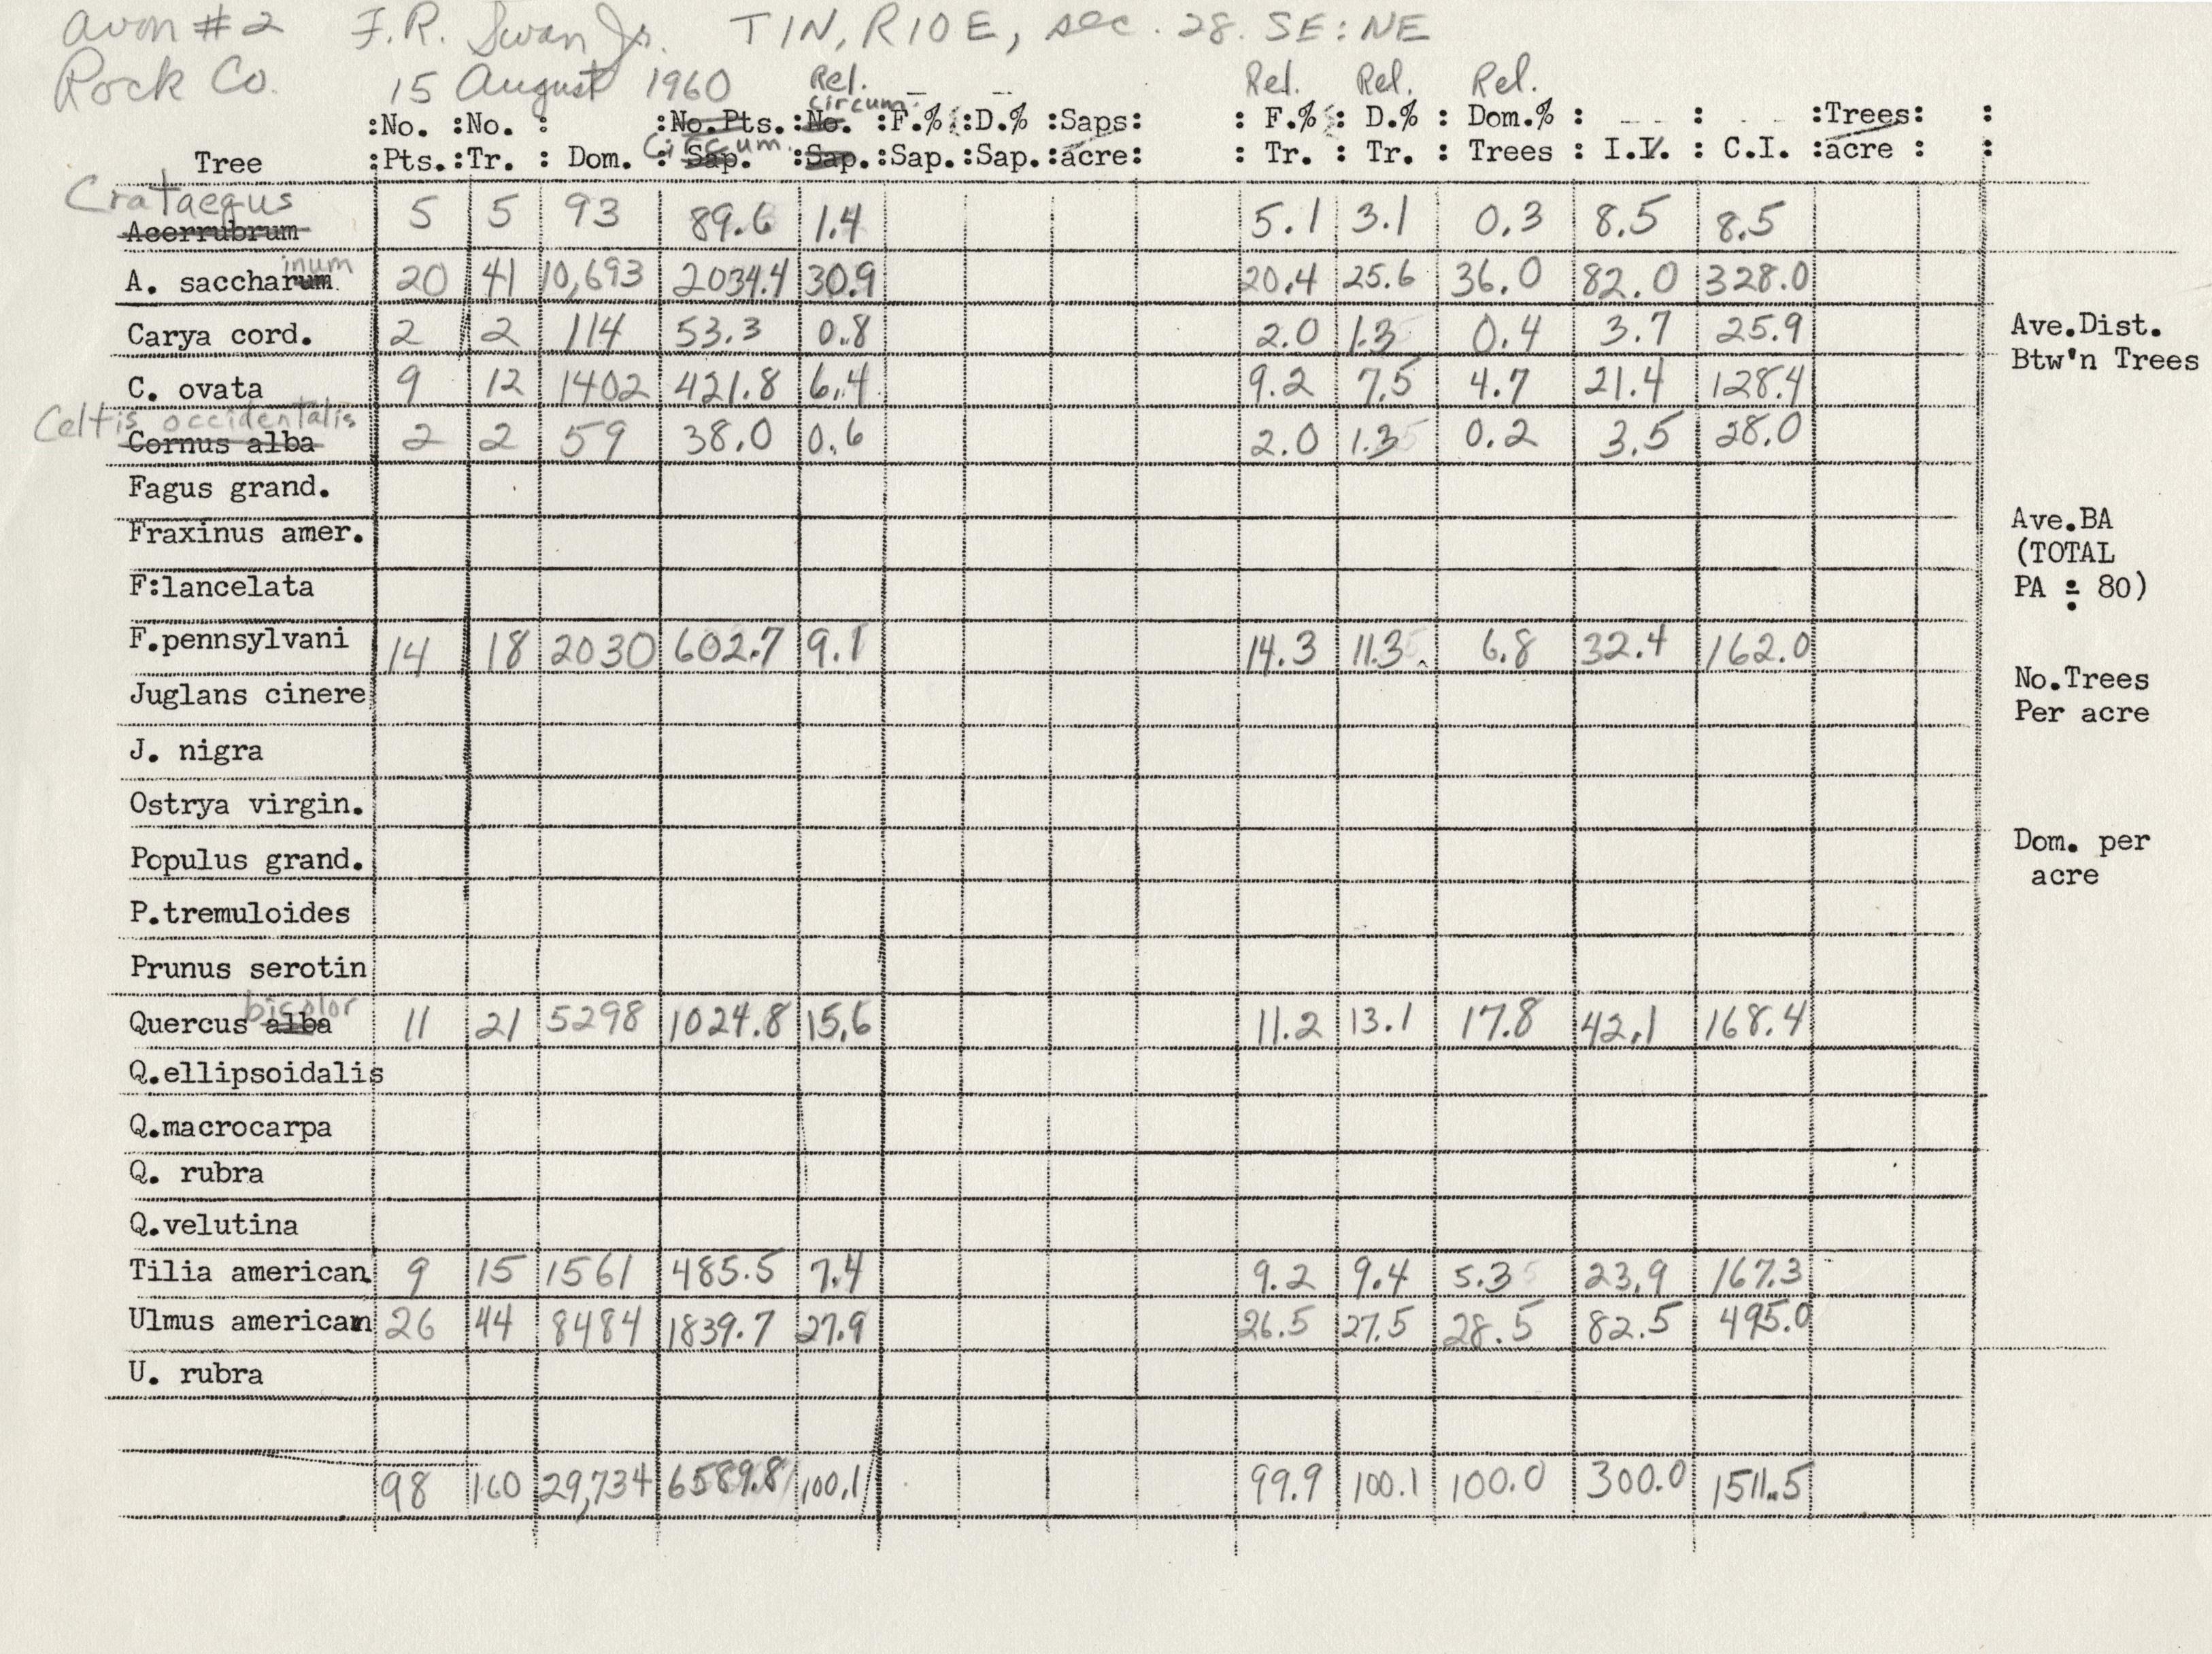 Avon #2 F.R. Swan Jr. T1N, R10E, sec. 28. SE:NE
Rock Co. 15 August 1960 Rel. Rel. Rel. Rel.
circum.
:No. :No. : :No.Pts. :No. :F.% :D.% :Saps: : F.% : D.% : Dom.% : : :Trees: :
Circum.
Tree :Pts.:Tr. : Dom. : Sap. :Sap.:Sap.:Sap.:acre: : Tr. : Tr. : Trees : I.V. : C.I. :acre : :
Crataegus
Acerrubrum 5 5 93 89.6 1.4 5.1 3.1 0.3 8.5 8.5
inum
A. saccharum 20 41 10,693 2034.4 30.9 20.4 25.6 36.0 82.0 328.0
Carya cord. 2 2 114 53.3 0.8 2.0 1.3 0.4 3.7 25.9 Ave.Dist.
Btw'n Trees
C. ovata 9 12 1402 421.8 6.4 9.2 7.5 4.7 21.4 128.4
Celtis occidentalis
Cornus alba 2 2 59 38.0 0.6 2.0 1.3 0.2 3.5 28.0
Fagus grand.
Fraxinus amer. Ave.BA
(TOTAL
F:lancelata PA ÷ 80)
F.pennsylvani 14 18 2030 602.7 9.1 14.3 11.3 6.8 32.4 162.0
Juglans cinere No.Trees
Per acre
J. nigra
Ostrya virgin.
Populus grand. Dom. per
acre
P.tremuloides
Prunus serotin
bicolor
Quercus alba 11 21 5298 1024.8 15.6 11.2 13.1 17.8 42.1 168.4
Q.ellipsoidalis
Q.macrocarpa
Q. rubra
Q.velutina
Tilia american 9 15 1561 485.5 7.4 9.2 9.4 5.3 23.9 167.3
Ulmus american 26 44 8484 1839.7 27.9 26.5 27.5 28.5 82.5 495.0
U. rubra
98 160 29,734 6589.8 100.1 99.9 100.1 100.0 300.0 1511.5